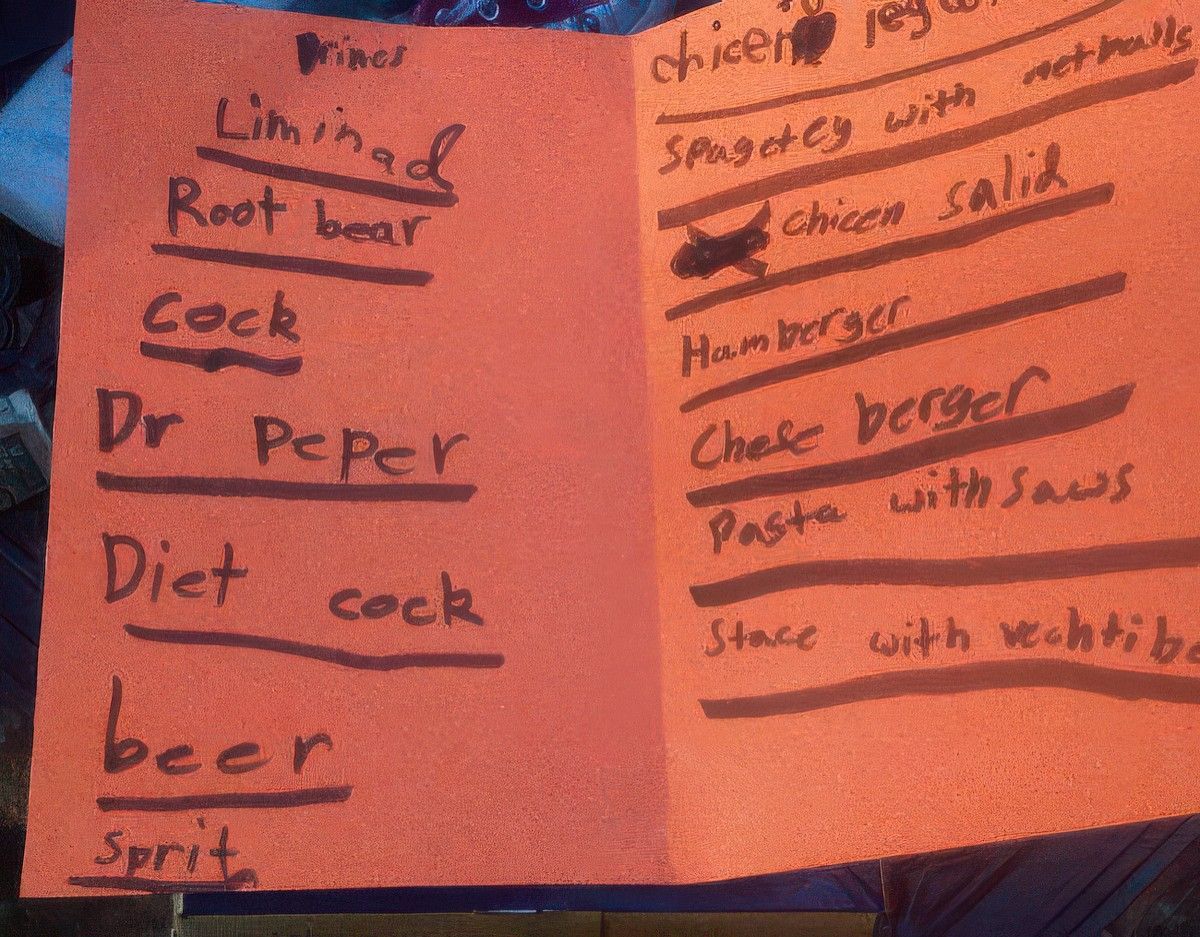 Drincs
Liminad
Root bear
cock
Dr peper
Diet cock
beer
sprit
chicen
spagetey with
chicen salid
Hamberger
Chese berger
Pasta with saws
Stace with